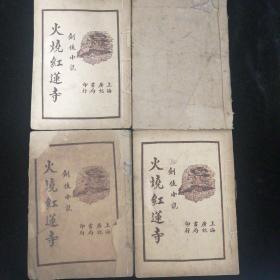 上海
廣記
書局
印行
劍俠小說
火燒紅蓮寺
上海
廣記
書局
印行
劍俠小說
火燒紅蓮寺
上海
廣記
書局
印行
劍俠小說
火燒紅蓮寺